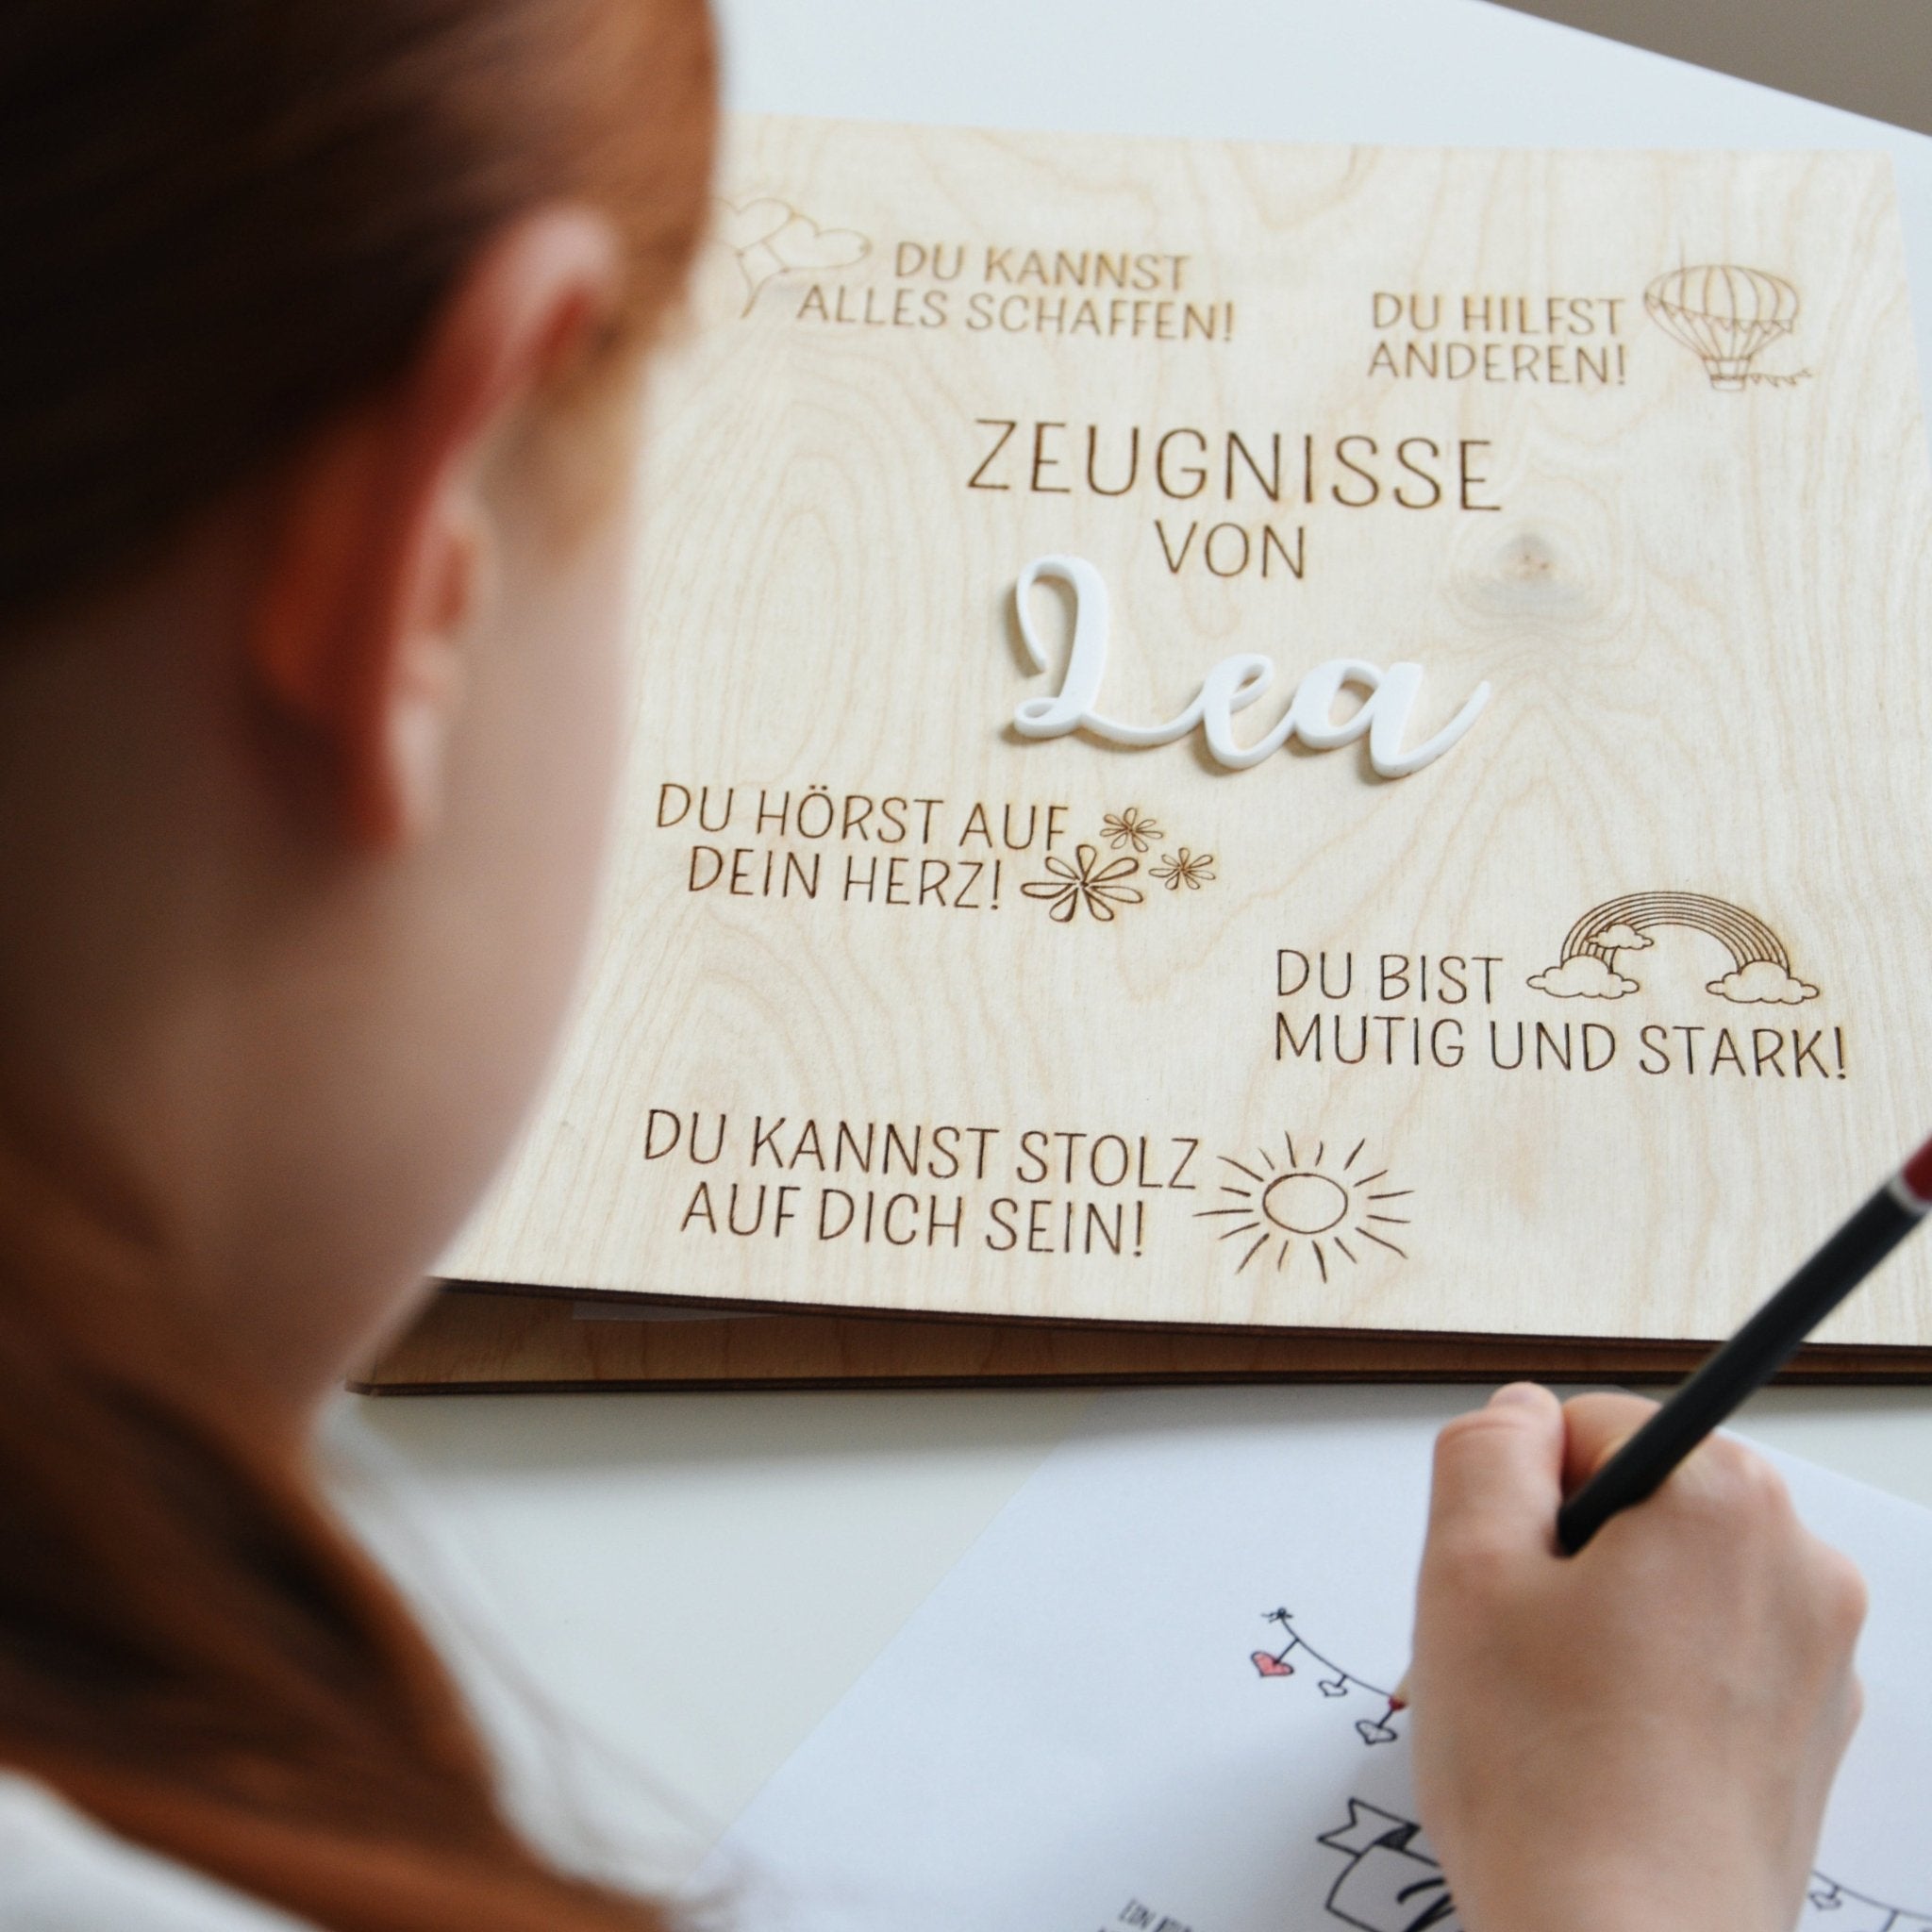 DU KANNST
ALLES SCHAFFEN!
DU HILFST
ANDEREN!
ZEUGNISSE
VON
Lea
DU HÖRST AUF
DEIN HERZ!
DU BIST
MUTIG UND STARK!
DU KANNST STOLZ
AUF DICH SEIN!